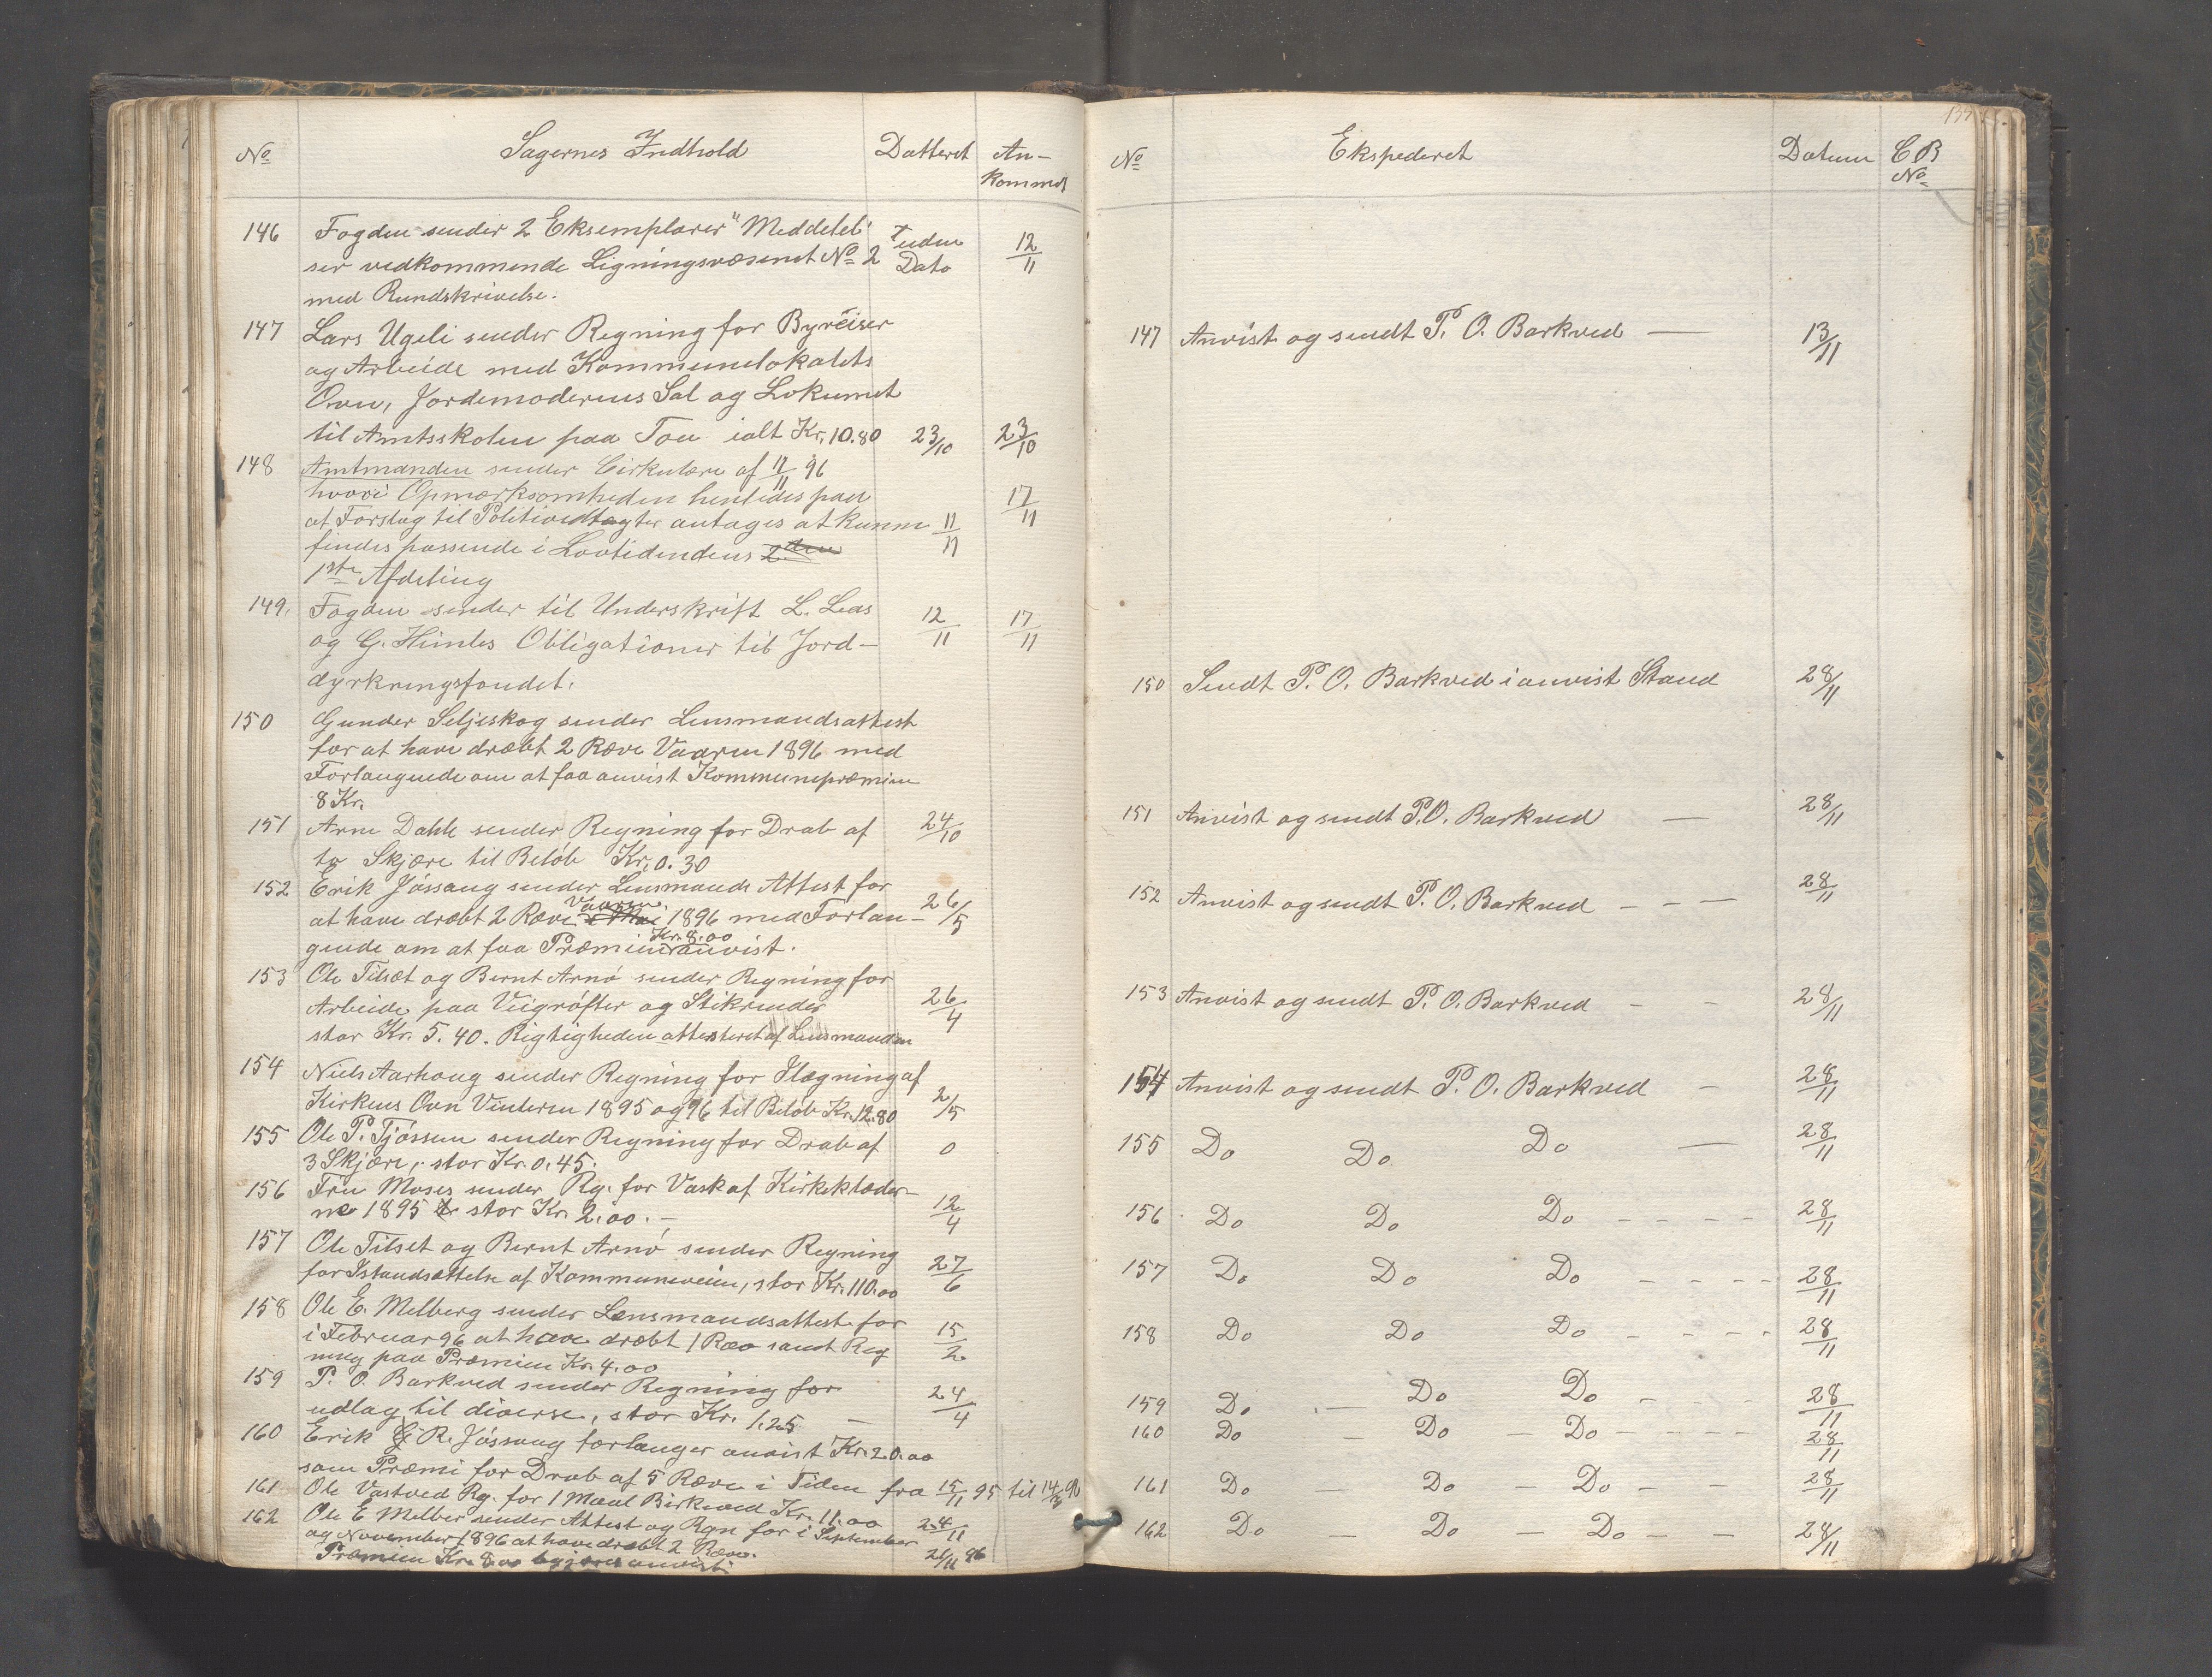 No Sagernes Indhold Datteret An-
kommet
146 Fogden sender 2 Eksemplarer "Meddelel-
ser vedkommende Ligningsvæsenet No 2 uden Dato 12/11
med Rundskrivelse.
147 Lars Ugeli sender Regning for Byreiser
og Arbeide med Kommunelokalets
Ovn, Jordemoderens Sal og Lokumet
til Amtsskolen paa Tou ialt Kr. 10.80 23/10 23/10
148 Amtmanden sender Cirkulære af 11/11 96
hvori Opmærksomheden henledes paa 17/11
at Forslag til Politivedtægter antages at kunne 11/11
findes passende i Lovtidendens 2den
1ste Afdeling
149. Fogden sender til Underskrift L. Leas 12/11 17/11
og G. Himles Obligationer til Jord-
dyrkningsfondet.
150 Gunder Seljeskog sender Lensmandsattest
for at have dræbt 2 Ræve Vaaren 1896 med
Forlangende om at faa anvist Kommunepræmien
8 Kr.
151 Arne Dahle sender Regning for Drab af 24/10
to Skjære til Beløb Kr. 0.30
152 Erik Jøssang sender Lensmands Attest for
at have dræbt 2 Ræve i Mai Vaaren 1896 med Forlan- 26/5
gende om at faa Præmien Kr. 8.00 anvist.
153 Ole Tilset og Bernt Arnø sender Regning for
Arbeide paa Veigrøfter og Stikrender 26/4
stor Kr. 5.40. Rigtigheden attesteret af Lensmanden
154 Niels Aarhoug sender Regning for Ilægning af
Kirkens Ovn Vinteren 1895 og 96 til Beløb Kr. 12.80 2/5
155 Ole P. Tjøssem sender Regning for Drab af 0
3 Skjære, stor Kr. 0.45.
156 Fru Moses sender Rg. for Vask af Kirkeklæder-
ne 1895 stor Kr. 2.00. – 12/4
157 Ole Tilset og Bernt Arnø sender Regning
for Istandsættelse af Kommuneveien, stor Kr. 110.00 27/6
158 Ole E. Melberg sender Lensmandsattest for
i Februar 96 at have dræbt 1 Ræv samt Reg 15/2
ning paa Præmien Kr. 4.00
159 P. O. Barkved sender Regning for
udlæg til diverse, stor Kr. 1.25 – 24/4
160 Erik R. Jøssang forlanger anvist Kr. 20.00
som Præmi for Drab af 5 Ræve i Tiden fra 15/11 95 til
161 Ole Vastved Rg. for 1 Maal Birkeved Kr. 11.00
162 Ole E Melber sender Attest og Rgn for i September 24/11
og November 1896 at have dræbt 2 Ræve. 21/11 96
Præmien Kr. 8.00 begjæres anvist.
No Ekspederet Datum C B
No
147 Anvist og sendt P. O. Barkved — 13/11
150 Sendt P. O. Barkved i anvist Stand 28/11
151 Anvist og sendt P. O. Barkved — 28/11
152 Anvist og sendt P. O. Barkved – – — 28/11
153 Anvist og sendt P. O. Barkved – – 28/11
154 Anvist og sendt P. O. Barkved – 28/11
155 Do Do Do — 28/11
156 Do Do Do – – – – 28/11
157 Do Do Do – – – – 28/11
158 Do Do Do – – – – 28/11
159 Do – Do Do – – – – 28/11
160 Do – Do – Do – – – – 28/11
161 Do – Do – Do – – – 28/11
162 Do – Do – Do – – 28/11